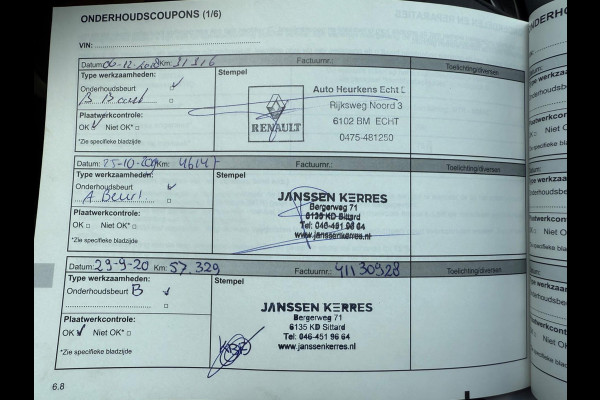 ONDERHOUDSCOUPONS (1/6)
VIN:
Datum: 06-12-2018 Km: 31316 Factuurnr.: Toelichting/diversen
Type werkzaamheden: Stempel
Onderhoudsbeurt ✓
B Beurt
Plaatwerkcontrole:
OK ✓ Niet OK* □
*Zie specifieke bladzijde
RENAULT
Auto Heurkens Echt
Rijksweg Noord 3
6102 BM ECHT
0475-481250
Datum: 25-10-2019 Km: 46147 Factuurnr.: Toelichting/diversen
Type werkzaamheden: Stempel
Onderhoudsbeurt ✓
A Beurt
Plaatwerkcontrole:
OK □ Niet OK* □
*Zie specifieke bladzijde
JANSSEN KERRES
Bergerweg 71
6135 KD Sittard
Tel: 046-451 96 64
www.janssenkerres.nl
Datum: 29-9-20 Km: 57.329 Factuurnr.: 41130928 Toelichting/diversen
Type werkzaamheden: Stempel
Onderhoudsbeurt B ✓
Plaatwerkcontrole:
OK ✓ Niet OK* □
*Zie specifieke bladzijde
JANSSEN KERRES
Bergerweg 71
6135 KD Sittard
Tel: 046-451 96 64
www.janssenkerres.nl
6.8
ONDERHO
VIN:
Datum:
Type werkza
Onderhoudsb
Plaatwerkcon
OK □ Niet O
*Zie specifieke b
Datum:
Type werkzaa
Onderhoudsbe
Plaatwerkcont
OK □ Niet OK
*Zie specifieke bla
Datum:
Type werkzaam
Onderhoudsbeu
Plaatwerkcontro
OK □ Niet OK*
*Zie specifieke blad